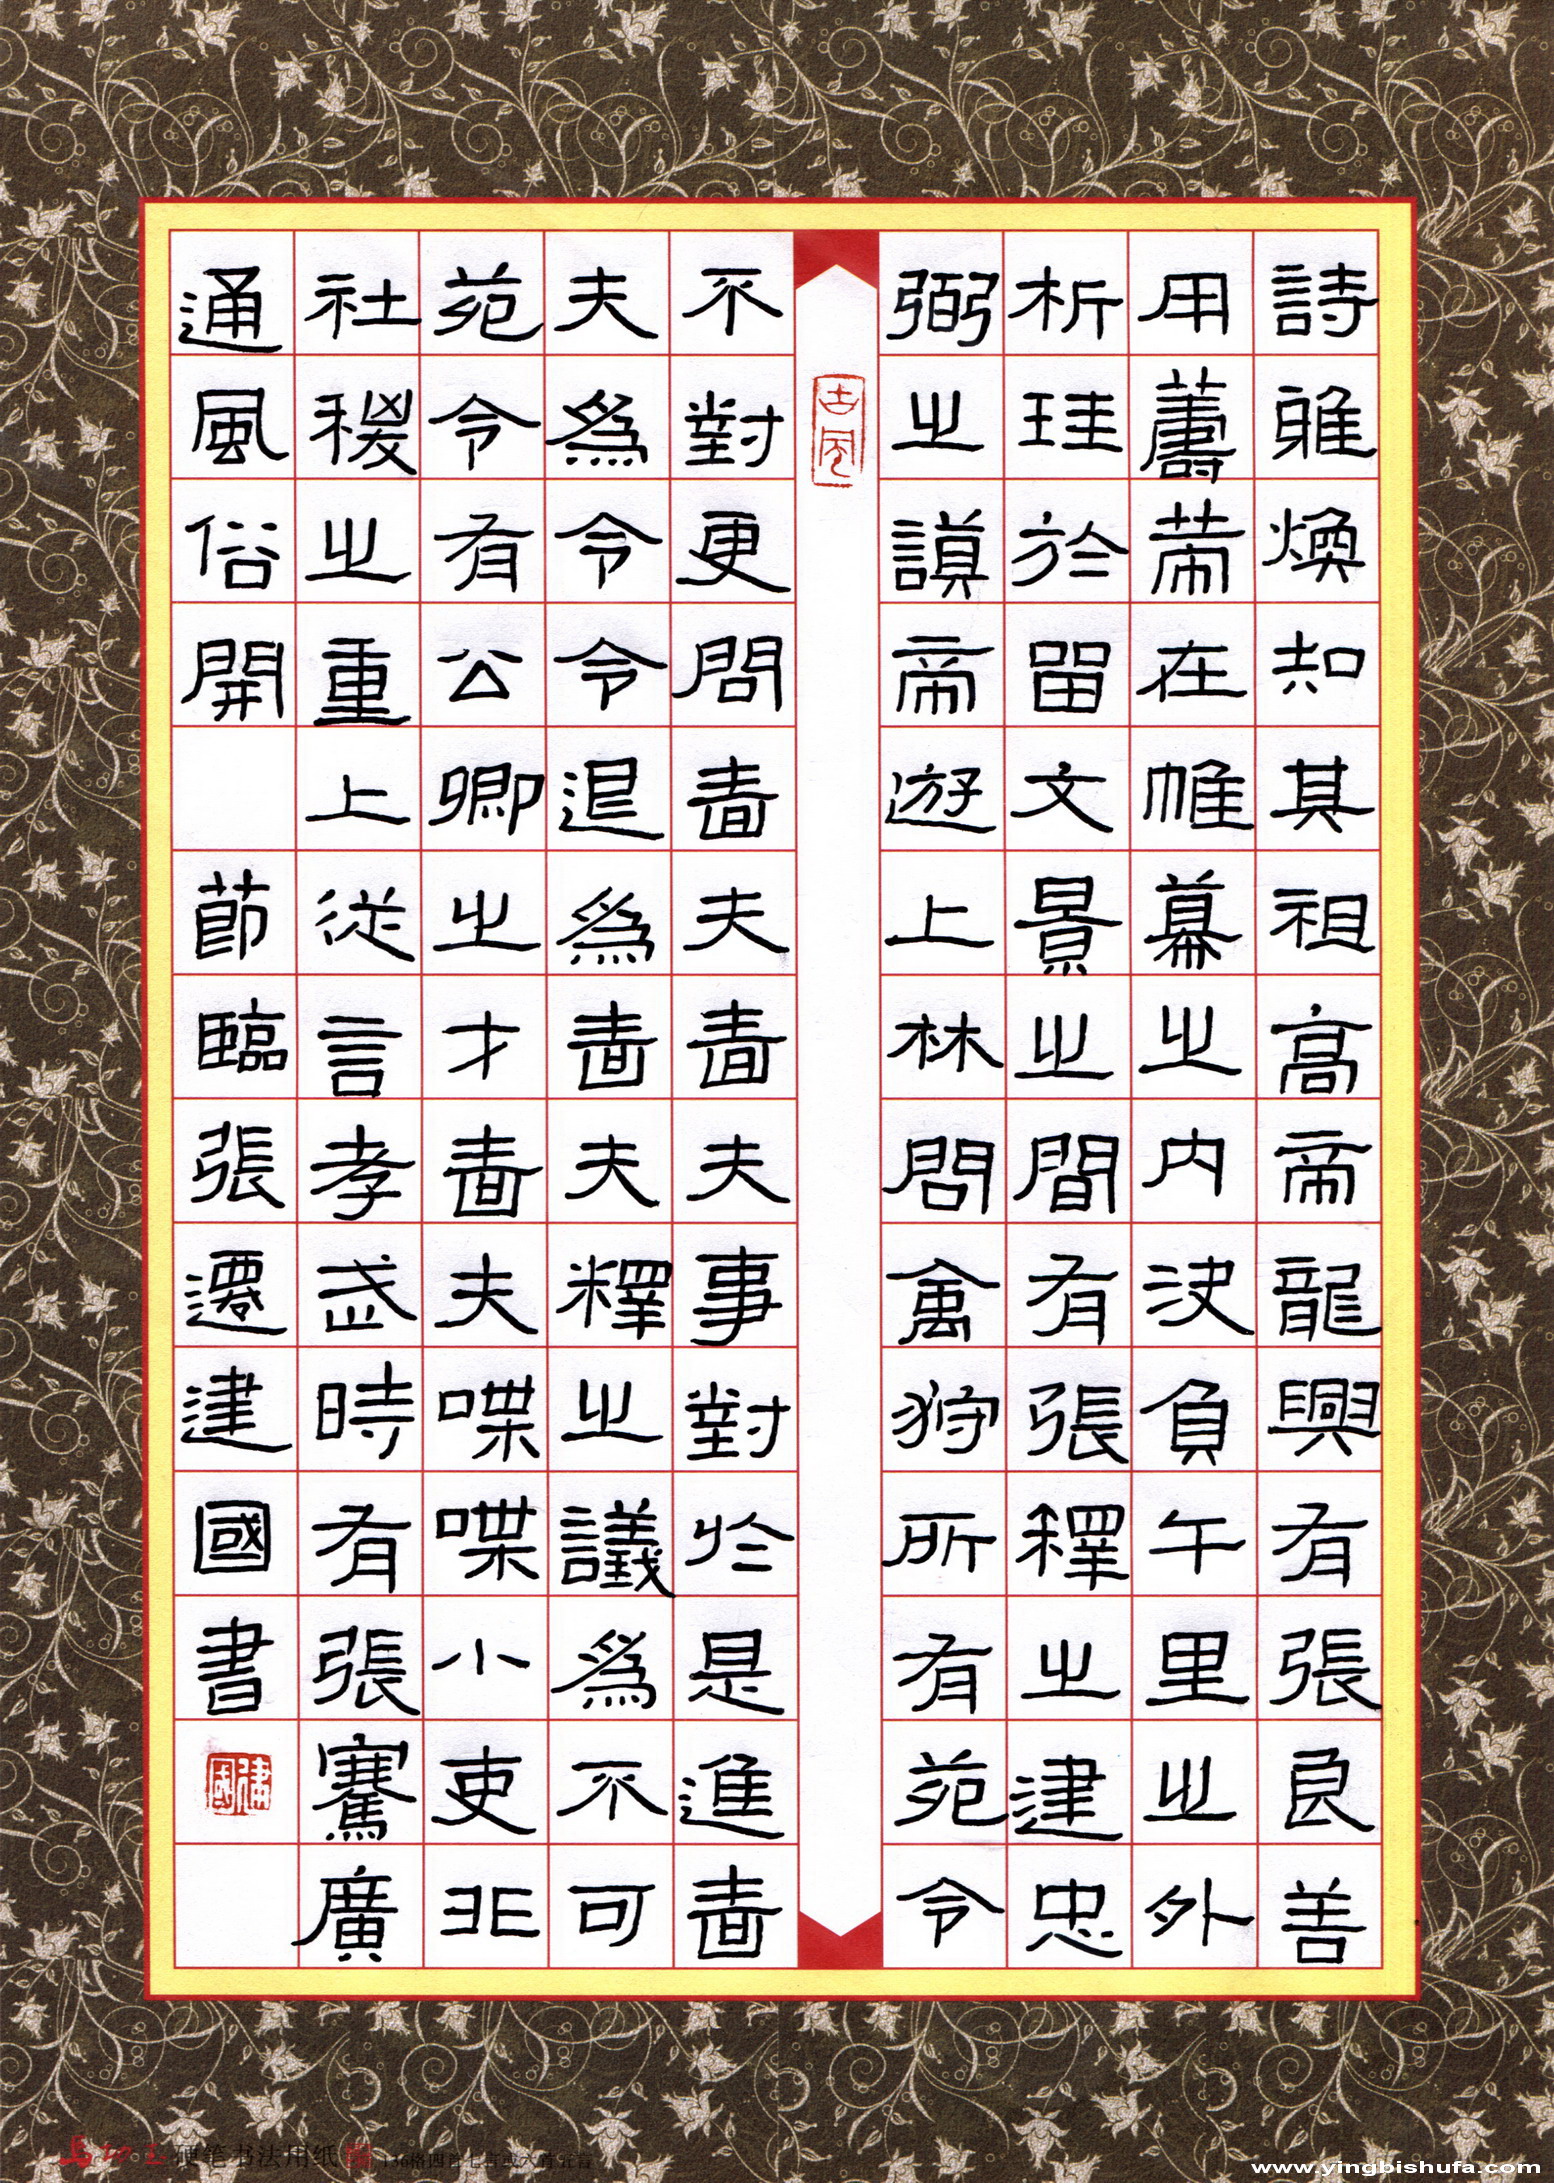 詩雅煥知其祖高帝龍興有張良善
用籌策在帷幕之内決負午里之外
析珪於留文景之間有張釋之建忠
弼之謨帝遊上林問禽狩所有苑令
不對更問嗇夫嗇夫事對於是進嗇
夫為令令退為嗇夫釋之議為不可
苑令有公卿之才嗇夫喋喋小吏非
社稷之重上從言孝武時有張騫廣
通風俗開 節臨張遷建國書
古風
建國
硬笔书法用纸
136格四首七言或六首五言
www.yingbishufa.com